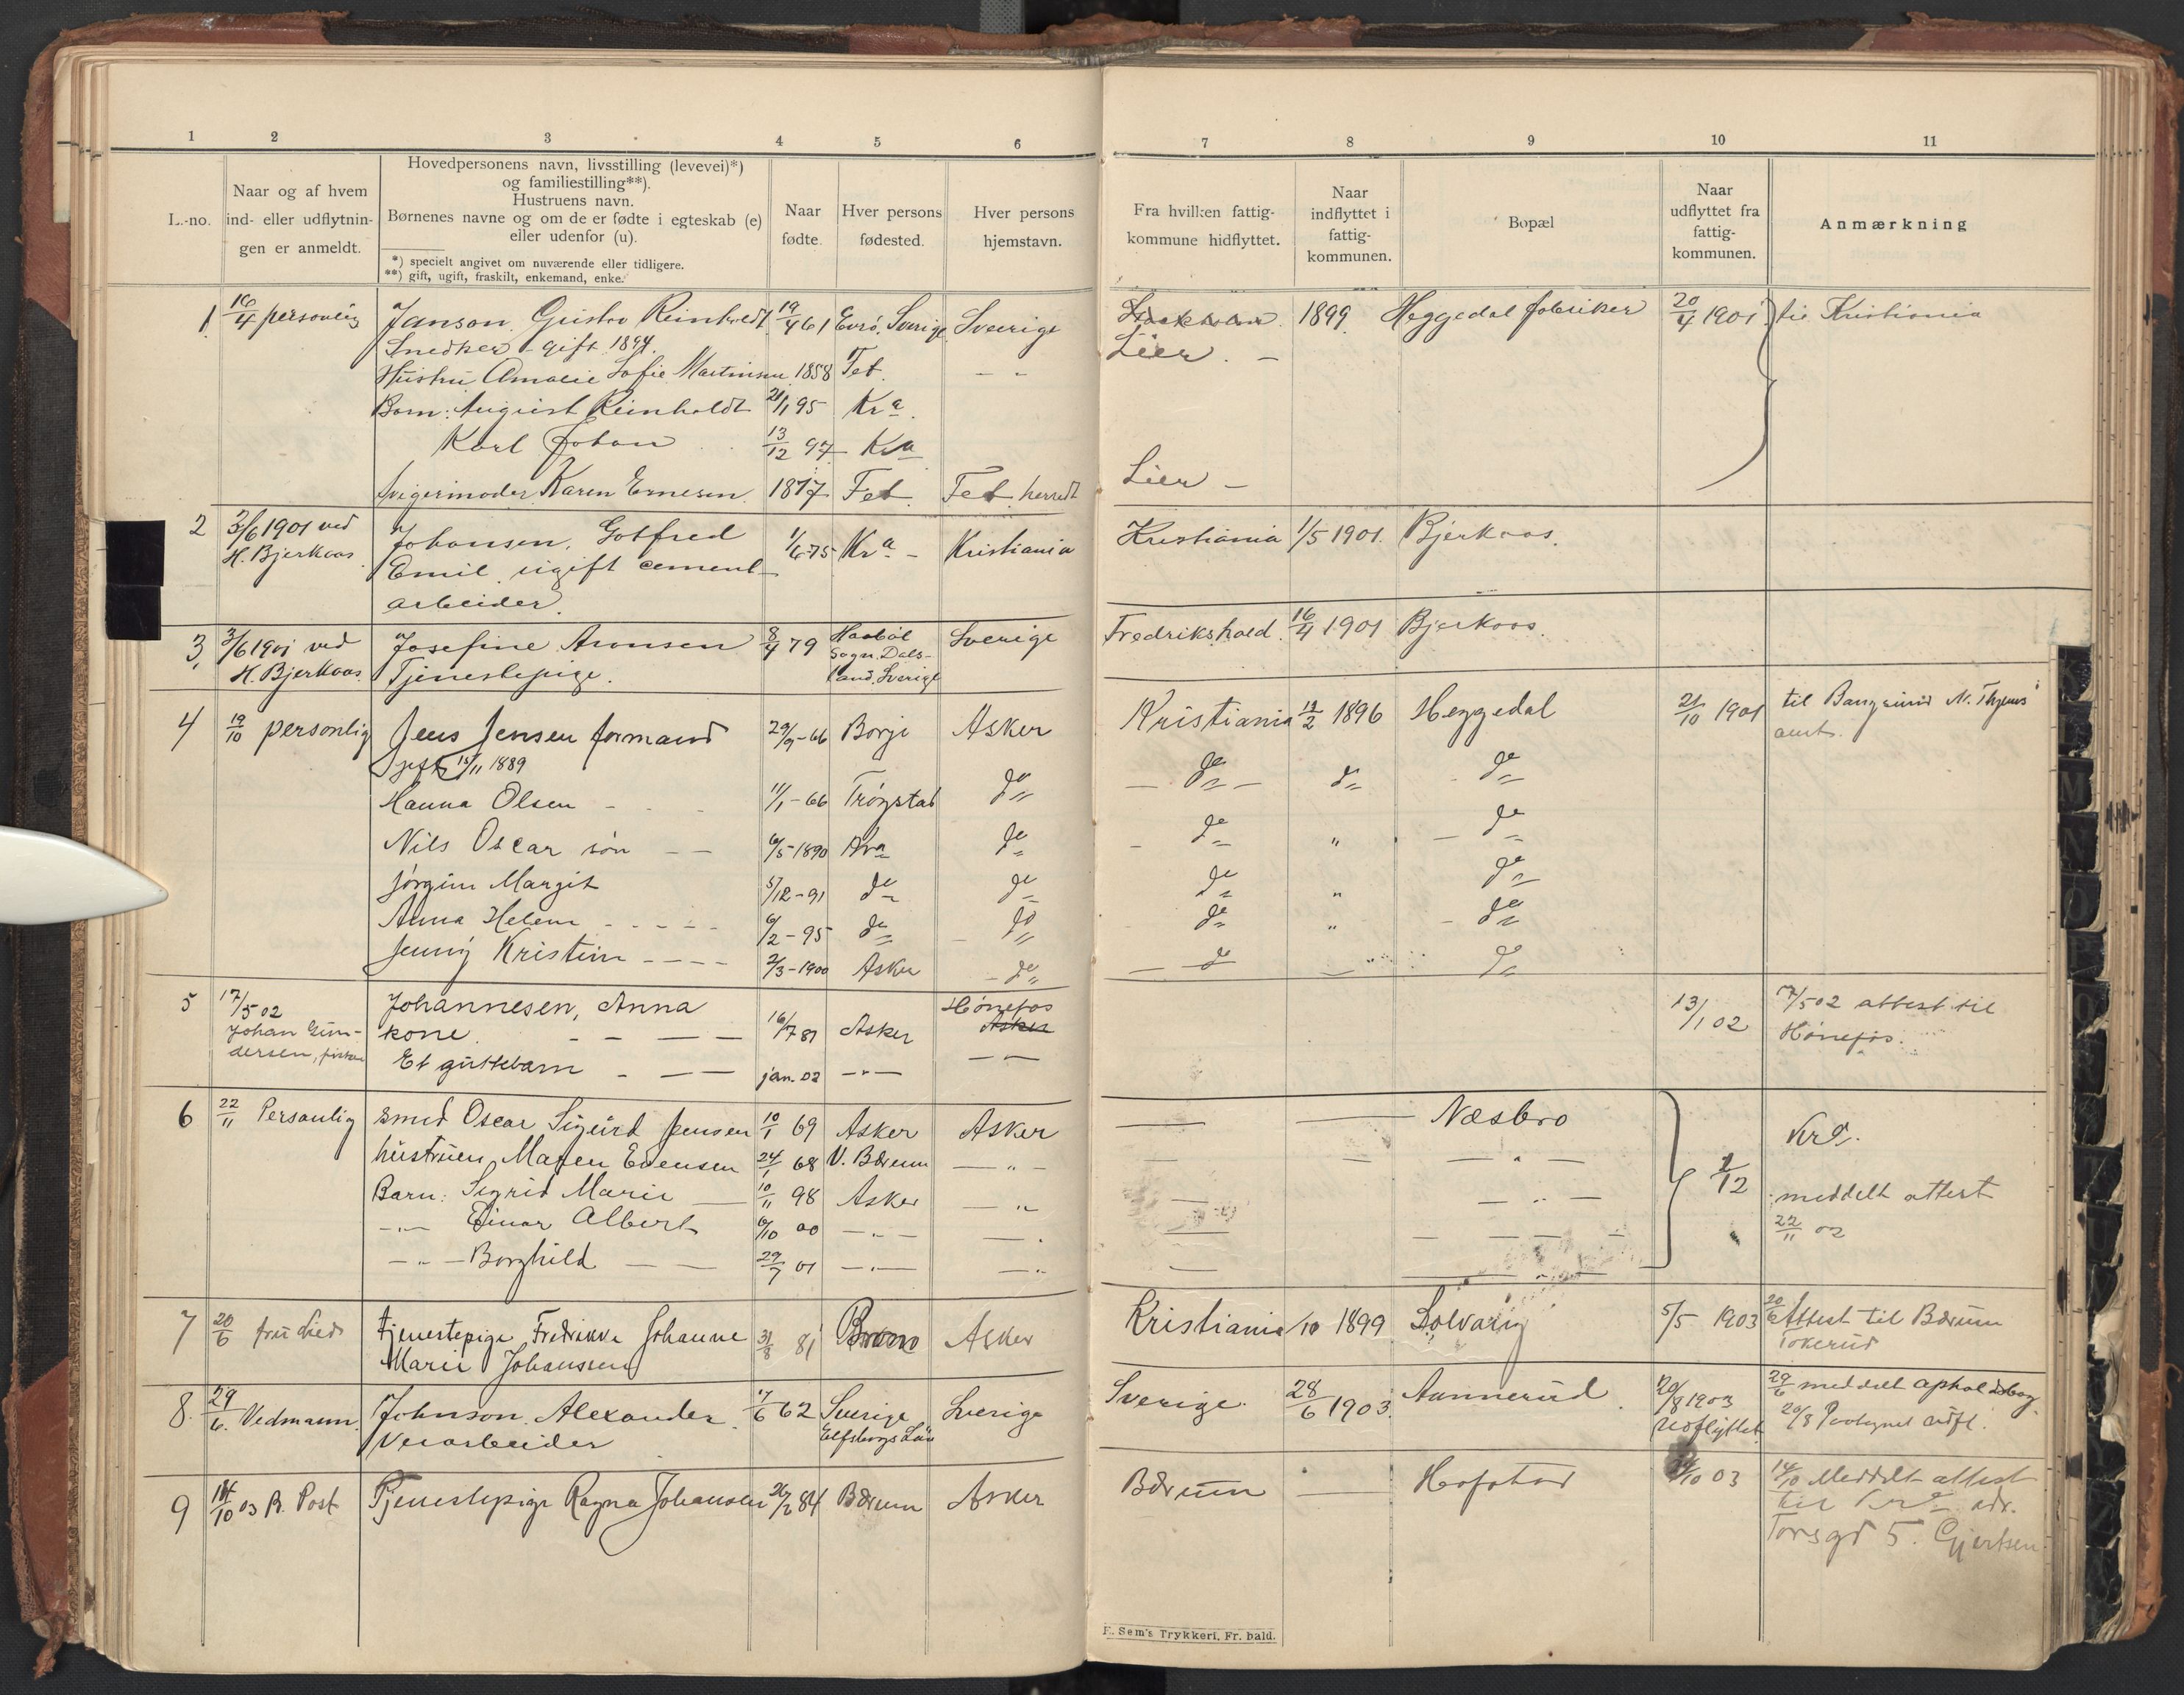 1 2 3 4 5 6 7 8 9 10 11
L.-no.
Naar og af hvem
ind- eller udflytnin-
gen er anmeldt.
Hovedpersonens navn, livsstilling (levevei)*)
og familiestilling**).
Hustruens navn.
Børnenes navne og om de er fødte i egteskab (e)
eller udenfor (u).
*) specielt angivet om nuværende eller tidligere.
**) gift, ugift, fraskilt, enkemand, enke.
Naar
fødte.
Hver persons
fødested.
Hver persons
hjemstavn.
Fra hvilken fattig-
kommune hidflyttet.
Naar
indflyttet i
fattig-
kommunen.
Bopæl
Naar
udflyttet fra
fattig-
kommunen.
Anmærkning
1. 16/4 personlig Janson, Gustav Reinholdt 19/4 61 Sverige Sverige 1899. Heggedal fabriker 20/4 1901 til Kristiania
Snedker - gift 1894. Lier. -
Hustru Amalie Sofie Martinsen 1858 Fet. - -
Barn: August Reinholdt 21/1 95 Kr a.
Karl Johan 13/12 97 Kra
Svigermoder Karen Ernesen. 1817 Fet Fet herred Lier -
2 3/6 1901 ved Johansen, Gotfred 75 Kra - Kristiania Kristiania 1/5 1901. Bjerkaas.
H. Bjerkaas. Emil, ugift cement-
arbeider.
3. 3/6 1901 ved Josefine Aronsen 8/4 79 Haabøl Sverige Fredrikshald. 16/4 1901 Bjerkaas.
H. Bjerkaas. Tjenestepige. Sogn. Dals-
land. Sverige
4 19/10 personlig Jens Jensen formand 29/9-66 Borge Asker Kristiania 12/2 1896 Heggedal 21/10 1901 til Bangsund N. Thjems
gift 1889 amt.
Hanna Olsen - 11/1-66 Trøgstad do do do do
Nils Oscar søn - - 6/5-1890 Kra do do " do
Jørgine Margit 5/12-91 do do do " do
Anna Helene - - - 6/2-95 do do do " do
Jenny Kristine - - - 2/3-1900 Asker do do do
5 17/5 02 Johannesen, Anna 16/7 81 Asker Hønefos 13/1 02 17/5 02 attest til
Johan Gun- kone. Asker Hønefos.
dersen, Et guttebarn - - - jan. 02 -"- -"-
6 22/11 Personlig smed Oscar Sigurd Jensen 10/1 69 Asker Asker - - Næsbro Kra.
hustruen Maren Evensen 24/1 68 V. Bærum -"- - - -"- 1/12
Barn: Sigrid Marie 10/11 98 Asker -"- - -"- meddelt attest
-"- Einar Albert 6/10 00 -"- -"- 22/11 02
-"- Borghild 29/7 01 -"- -"-
7 20/6 fru Lied Tjenestepige Fredrikke Johanne 31/8 81 Asker Kristiania /10 1899 Solvang 5/5 1903 20/6 Attest til Bærum
Marie Johanssen Tokerud
8. 29/6. Vedmann. Johnson, Alexander. 17/6 62 Sverige Sverige Sverige 28/6 1903. Aannerud. 20/8 1903 29/6 meddelt opholdsbog
Veiarbeider Elfsborgs Län Udflyttet 20/8 Paategnet udfl.
9 14/10 03 B. Post Tjenestepige Ragna Johansen 26/2 84 Bærum Asker Bærum - Hofstad 14/10 03 14/10 Meddelt attest
til Kra adr.
Torvgd 5. Gjertsen
F. Sem's Trykkeri, Fr. hald.